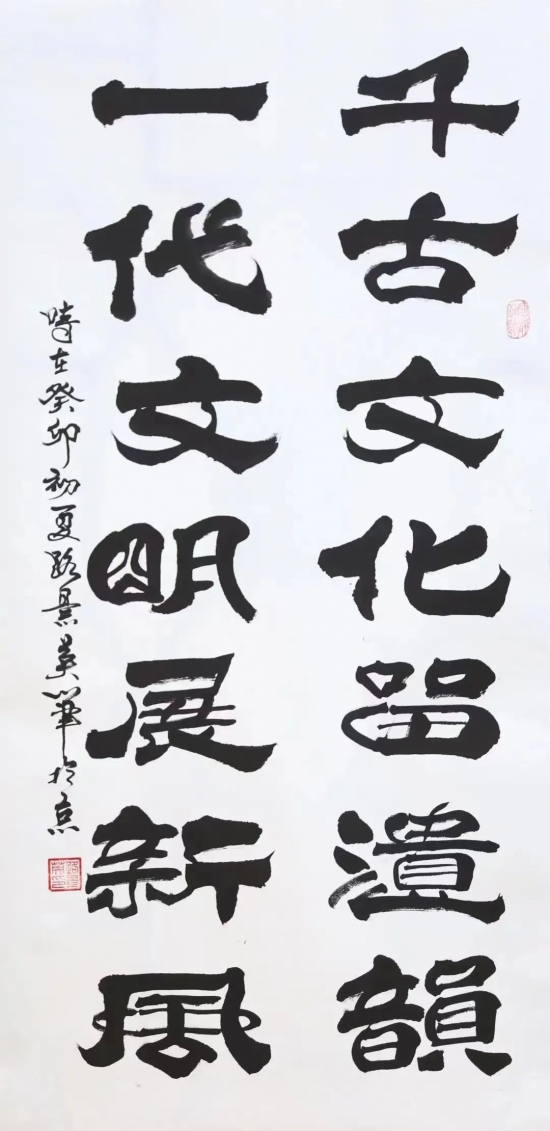 千古文化留遺韻
一代文明展新風
時在癸卯初夏路景英筆於京